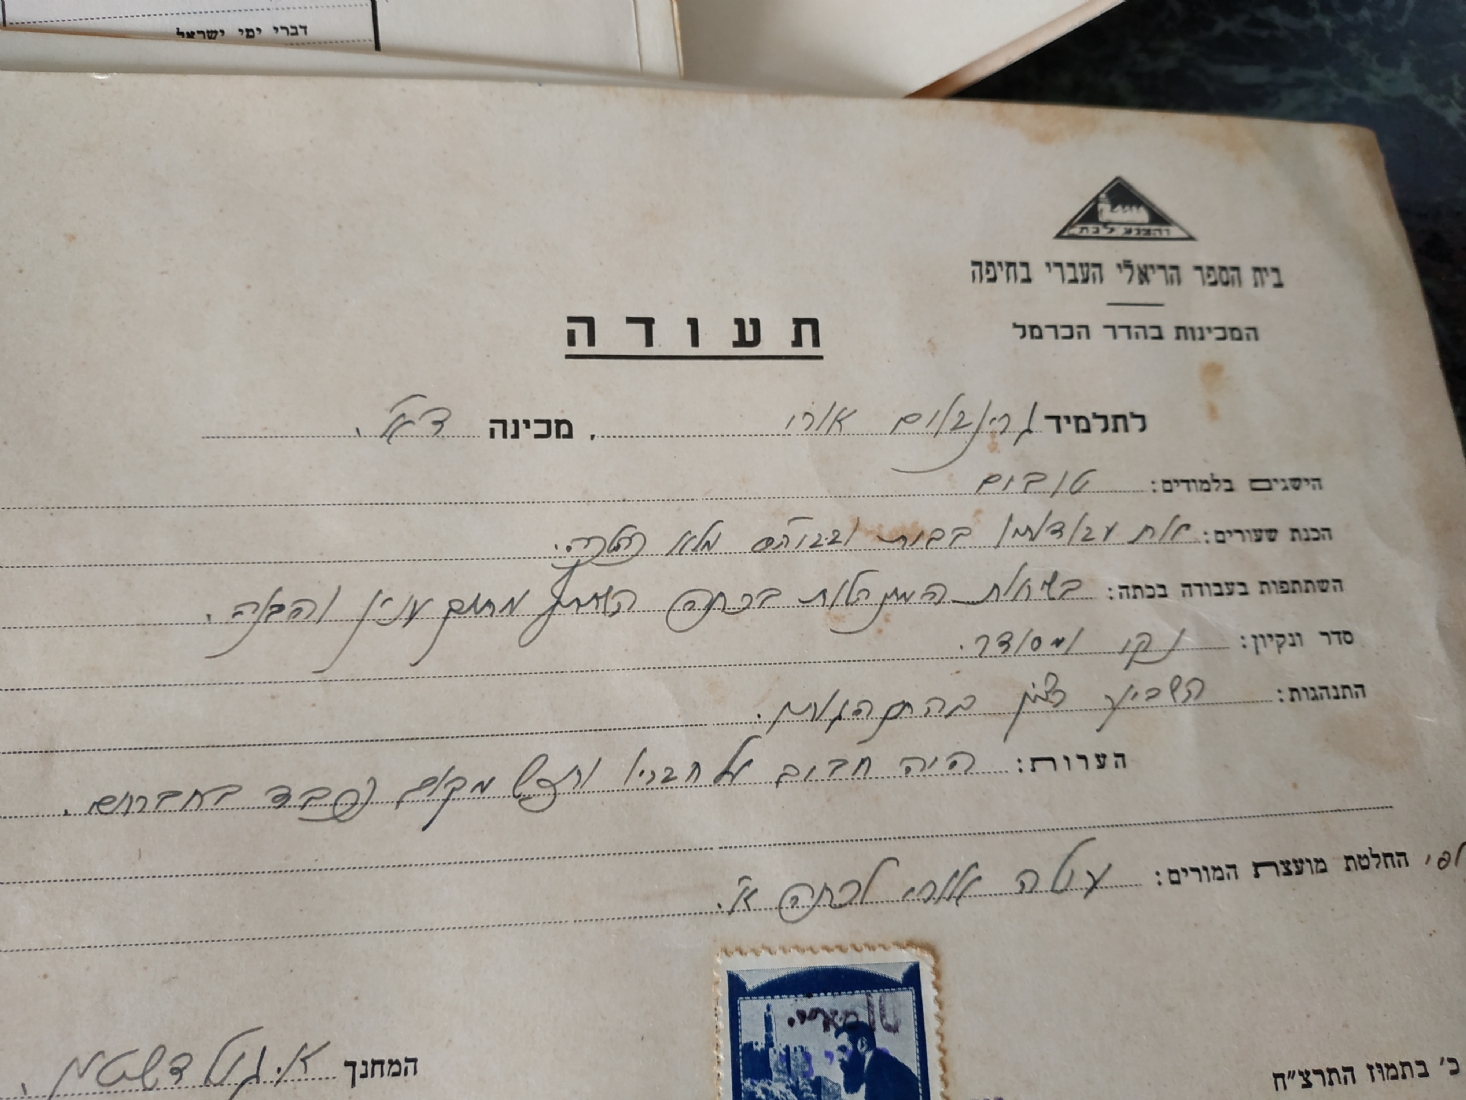 דברי ימי ישראל
והצנע לכת
בית הספר הריאלי העברי בחיפה
המכינות בהדר הכרמל
תעודה
לתלמיד גרינבוים אורי, מכינה ד"א.
הישגים בלמודים: טובים
הכנת שעורים: את עבודותיו בבית
השתתפות בעבודה בכתה: בשיחות בכתה השתתף מתוך ענין והבנה.
סדר ונקיון: נקי ומסודר.
התנהגות: השביע רצון בהתנהגותו.
הערות: היה חביב על חבריו ותפש מקום נכבד בחברתם.
לפי החלטת מועצת המורים: עולה אורי לכתה א'.
המחנך א. גולדשטין.
כ' בתמוז התרצ"ח